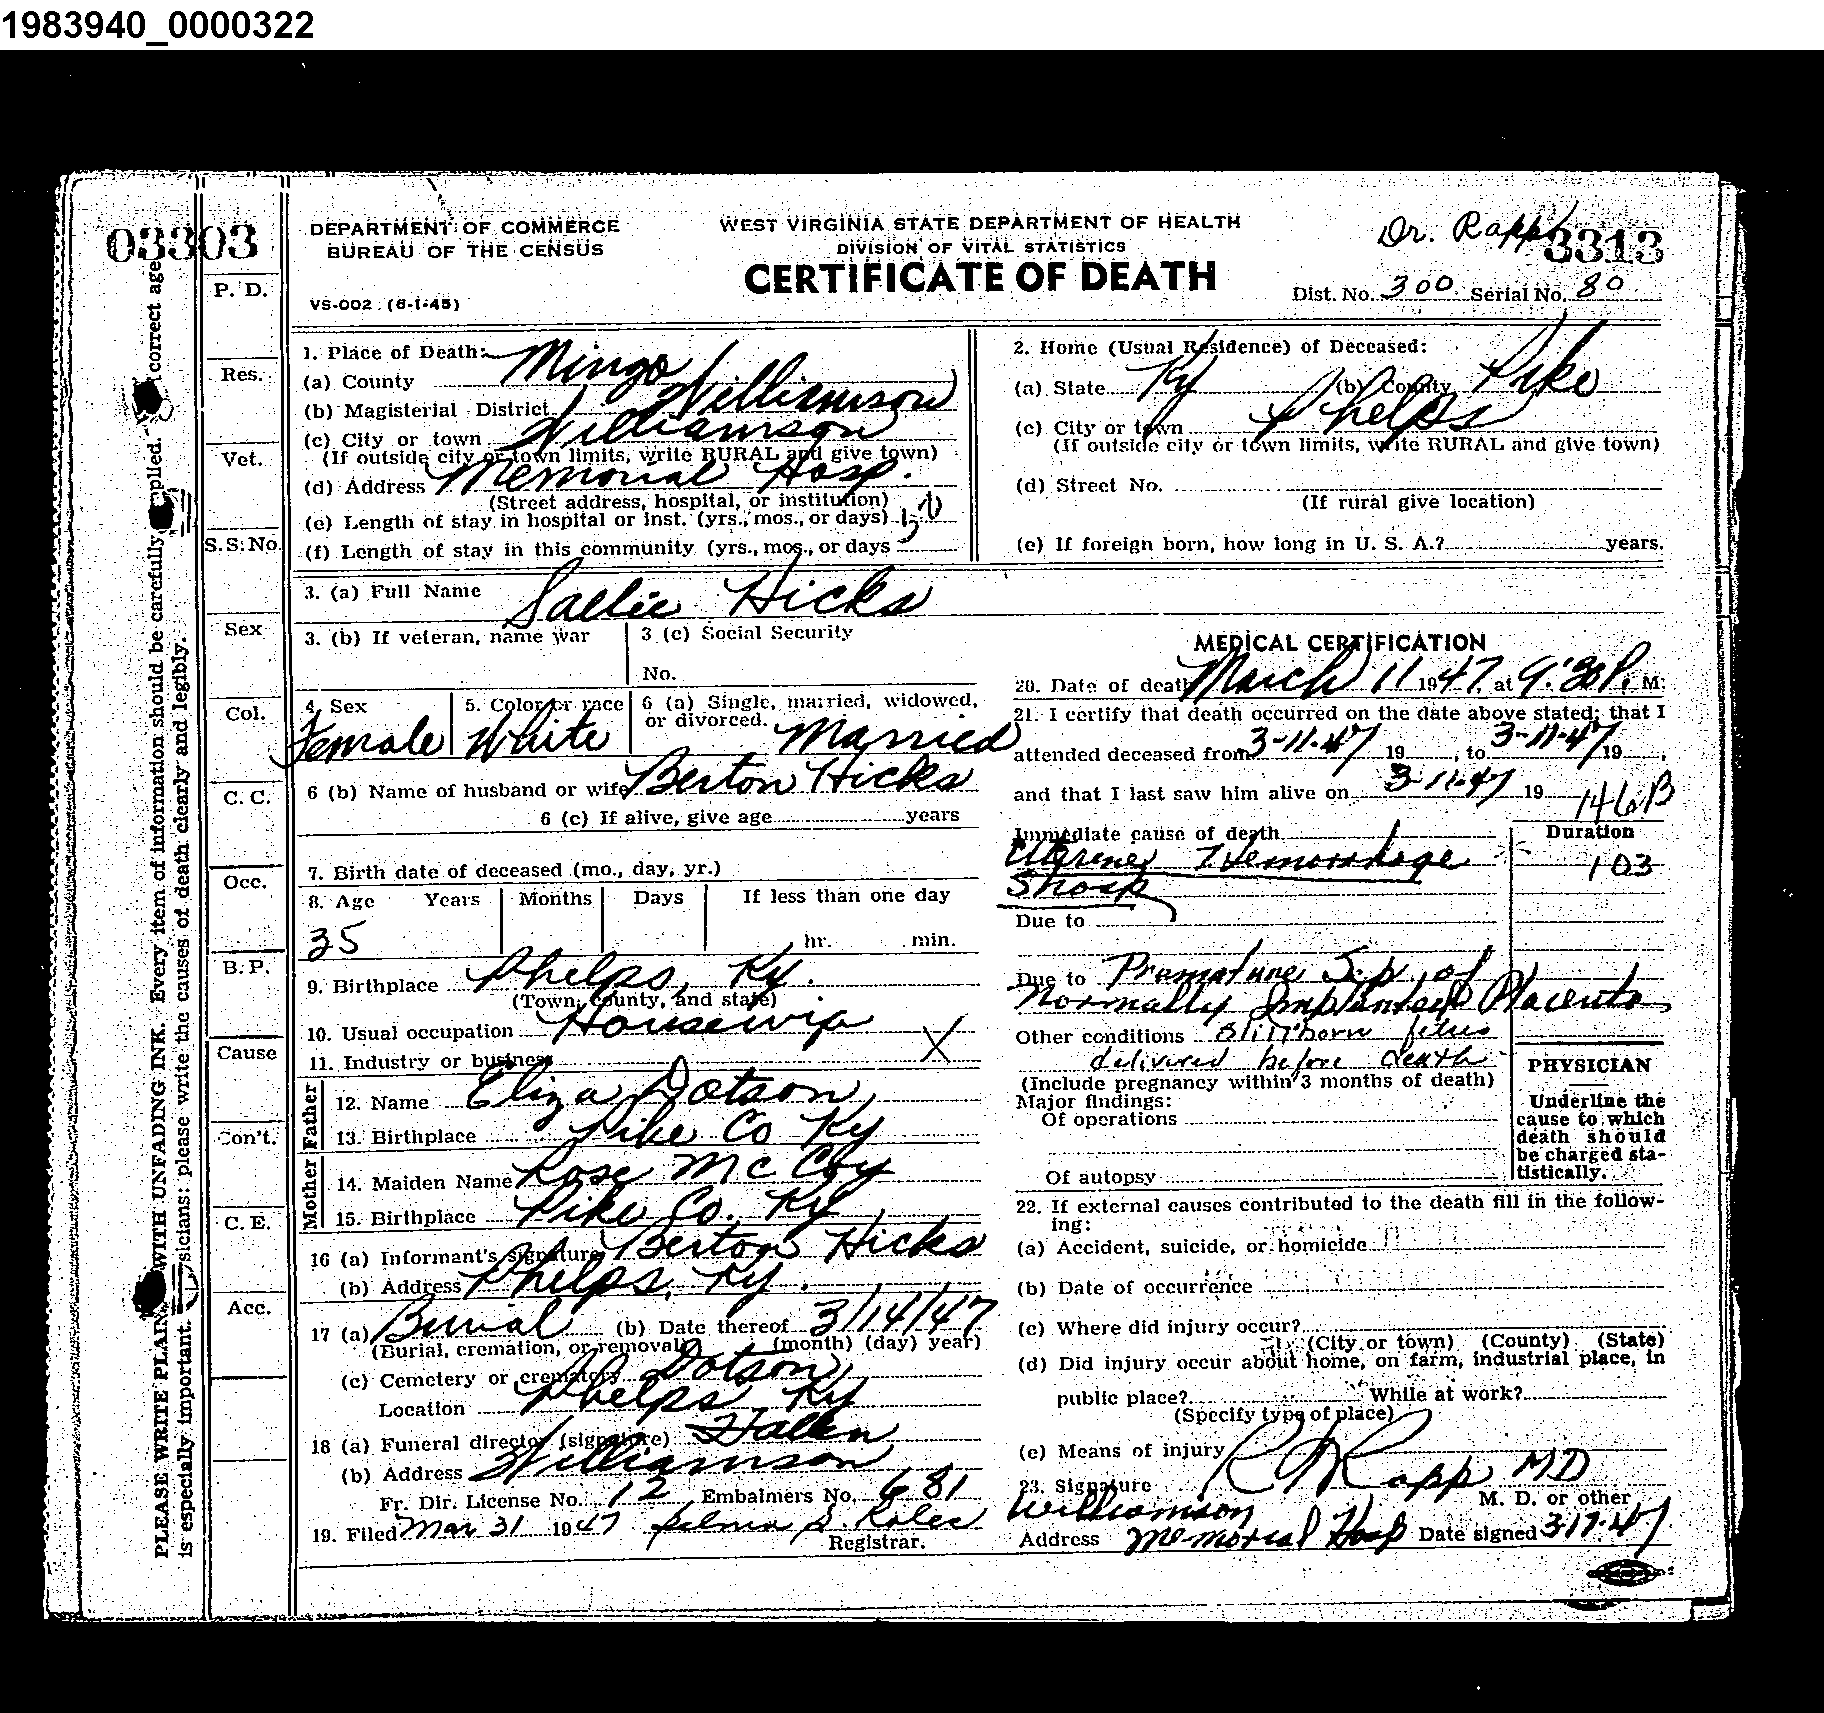 1983940_0000322
03303
DEPARTMENT OF COMMERCE
BUREAU OF THE CENSUS
VS-002 (6-1-45)
WEST VIRGINIA STATE DEPARTMENT OF HEALTH
DIVISION OF VITAL STATISTICS
CERTIFICATE OF DEATH
Dr. Rapp 3313
Dist. No. 300 Serial No. 80
PLEASE WRITE PLAINLY WITH UNFADING INK. Every item of information should be carefully supplied. correct age
is especially important. Physicians: please write the causes of death clearly and legibly.
P. D.
Res.
Vet.
S.S. No.
Sex
Col.
C. C.
Occ.
B. P.
Cause
Con't.
C. E.
Acc.
1. Place of Death:
(a) County Mingo
(b) Magisterial District Williamson
(c) City or town Williamson
(If outside city or town limits, write RURAL and give town)
(d) Address Memorial Hosp.
(Street address, hospital, or institution)
(e) Length of stay in hospital or inst. (yrs., mos., or days)
(f) Length of stay in this community (yrs., mos., or days
2. Home (Usual Residence) of Deceased:
(a) State Ky (b) County Pike
(c) City or town Phelps
(If outside city or town limits, write RURAL and give town)
(d) Street No.
(If rural give location)
(e) If foreign born, how long in U. S. A.? years.
3. (a) Full Name Sallie Hicks
3. (b) If veteran, name war
3 (c) Social Security
No.
4. Sex Female
5. Color or race White
6 (a) Single, married, widowed,
or divorced. Married
6 (b) Name of husband or wife Berton Hicks
6 (c) If alive, give age years
7. Birth date of deceased (mo., day, yr.)
8. Age Years Months Days If less than one day
35 hr. min.
9. Birthplace Phelps, Ky.
(Town, county, and state)
10. Usual occupation Housewife
11. Industry or business X
Father
12. Name Eliza Dotson
13. Birthplace Pike Co Ky
Mother
14. Maiden Name Rose McCoy
15. Birthplace Pike Co. Ky
16 (a) Informant's signature Berton Hicks
(b) Address Phelps, Ky.
17 (a) Burial (b) Date thereof 3/14/47
(Burial, cremation, or removal) (month) (day) year)
(c) Cemetery or crematory Dotson
Location Phelps Ky
18 (a) Funeral director (signature)
(b) Address Williamson
Fr. Dir. License No. 12 Embalmers No. 681
19. Filed Mar 31 1947
Registrar.
MEDICAL CERTIFICATION
20. Date of death March 11 1947 at 9:30 P. M.
21. I certify that death occurred on the date above stated; that I
attended deceased from 3-11-47 19 , to 3-11-47 19 ,
and that I last saw him alive on 3-11-47 19
146B
Immediate cause of death Duration
Uterine Hemorrhage 103
Shock
Due to
Due to Premature Sep. of
Normally Implanted Placenta
Other conditions Stillborn fetus
delivered before death
(Include pregnancy within 3 months of death)
Major findings:
Of operations
Of autopsy
PHYSICIAN
Underline the
cause to which
death should
be charged sta-
tistically.
22. If external causes contributed to the death fill in the follow-
ing:
(a) Accident, suicide, or homicide
(b) Date of occurrence
(c) Where did injury occur?
(City or town) (County) (State)
(d) Did injury occur about home, on farm, industrial place, in
public place? While at work?
(Specify type of place)
(e) Means of injury
23. Signature Rapp MD
M. D. or other
Williamson
Address Memorial Hosp Date signed 3-17-47